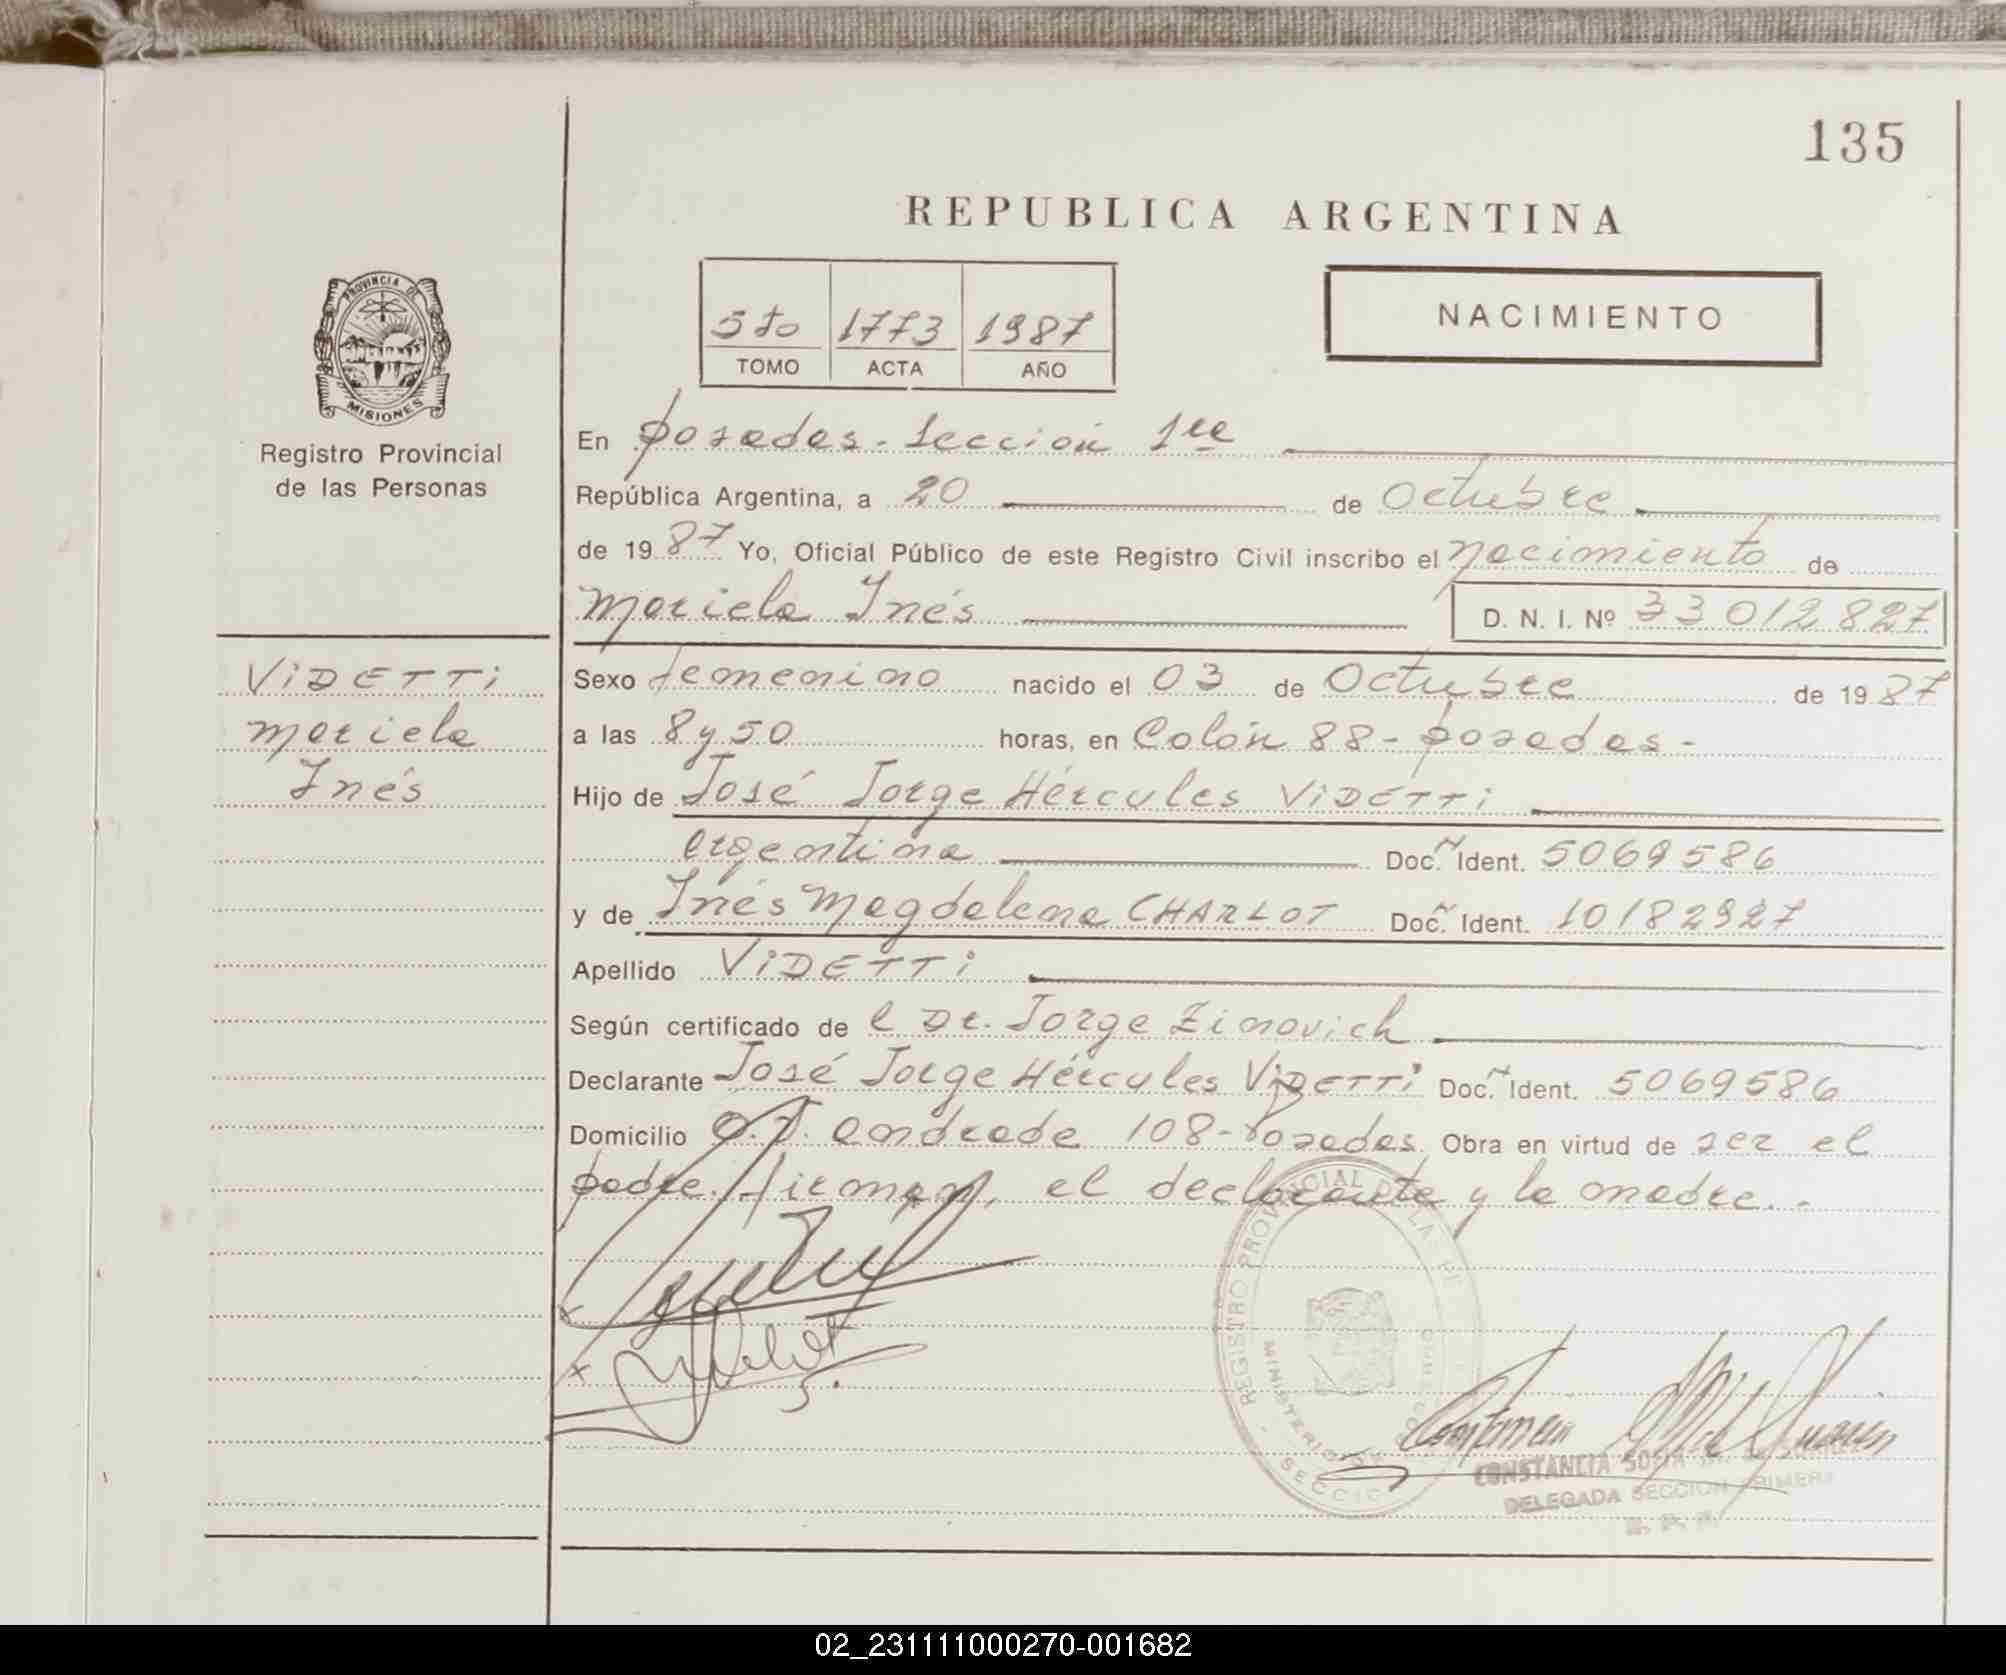 135
REPUBLICA ARGENTINA
5to 1773 1987
TOMO ACTA AÑO
NACIMIENTO
PROVINCIA DE
MISIONES
Registro Provincial
de las Personas
En Posadas - Sección 1ra
República Argentina, a 20 de Octubre
de 1987 Yo, Oficial Público de este Registro Civil inscribo el nacimiento de
Mariela Inés D. N. I. Nº 33 012 827
ViDETTi
Mariela
Inés
Sexo femenino nacido el 03 de Octubre de 1987
a las 8 y 50 horas, en Colón 88 - Posadas -
Hijo de José Jorge Hércules ViDETTi
argentina Doc. Ident. 5069586
y de Inés Magdalena CHARLOT Doc. Ident. 10182927
Apellido ViDETTi
Según certificado de l Dr. Jorge Zinovich
Declarante José Jorge Hércules ViDETTi Doc. Ident. 5069586
Domicilio O.V. Andrade 108 - Posadas. Obra en virtud de ser el
padre. Firman, el declarante y la madre. -
REGISTRO PROVINCIAL DE LAS
MINISTERIO DE
SECCI
CONSTANCIA SOFIA
DELEGADA SECCION PRIMERA
02_231111000270-001682